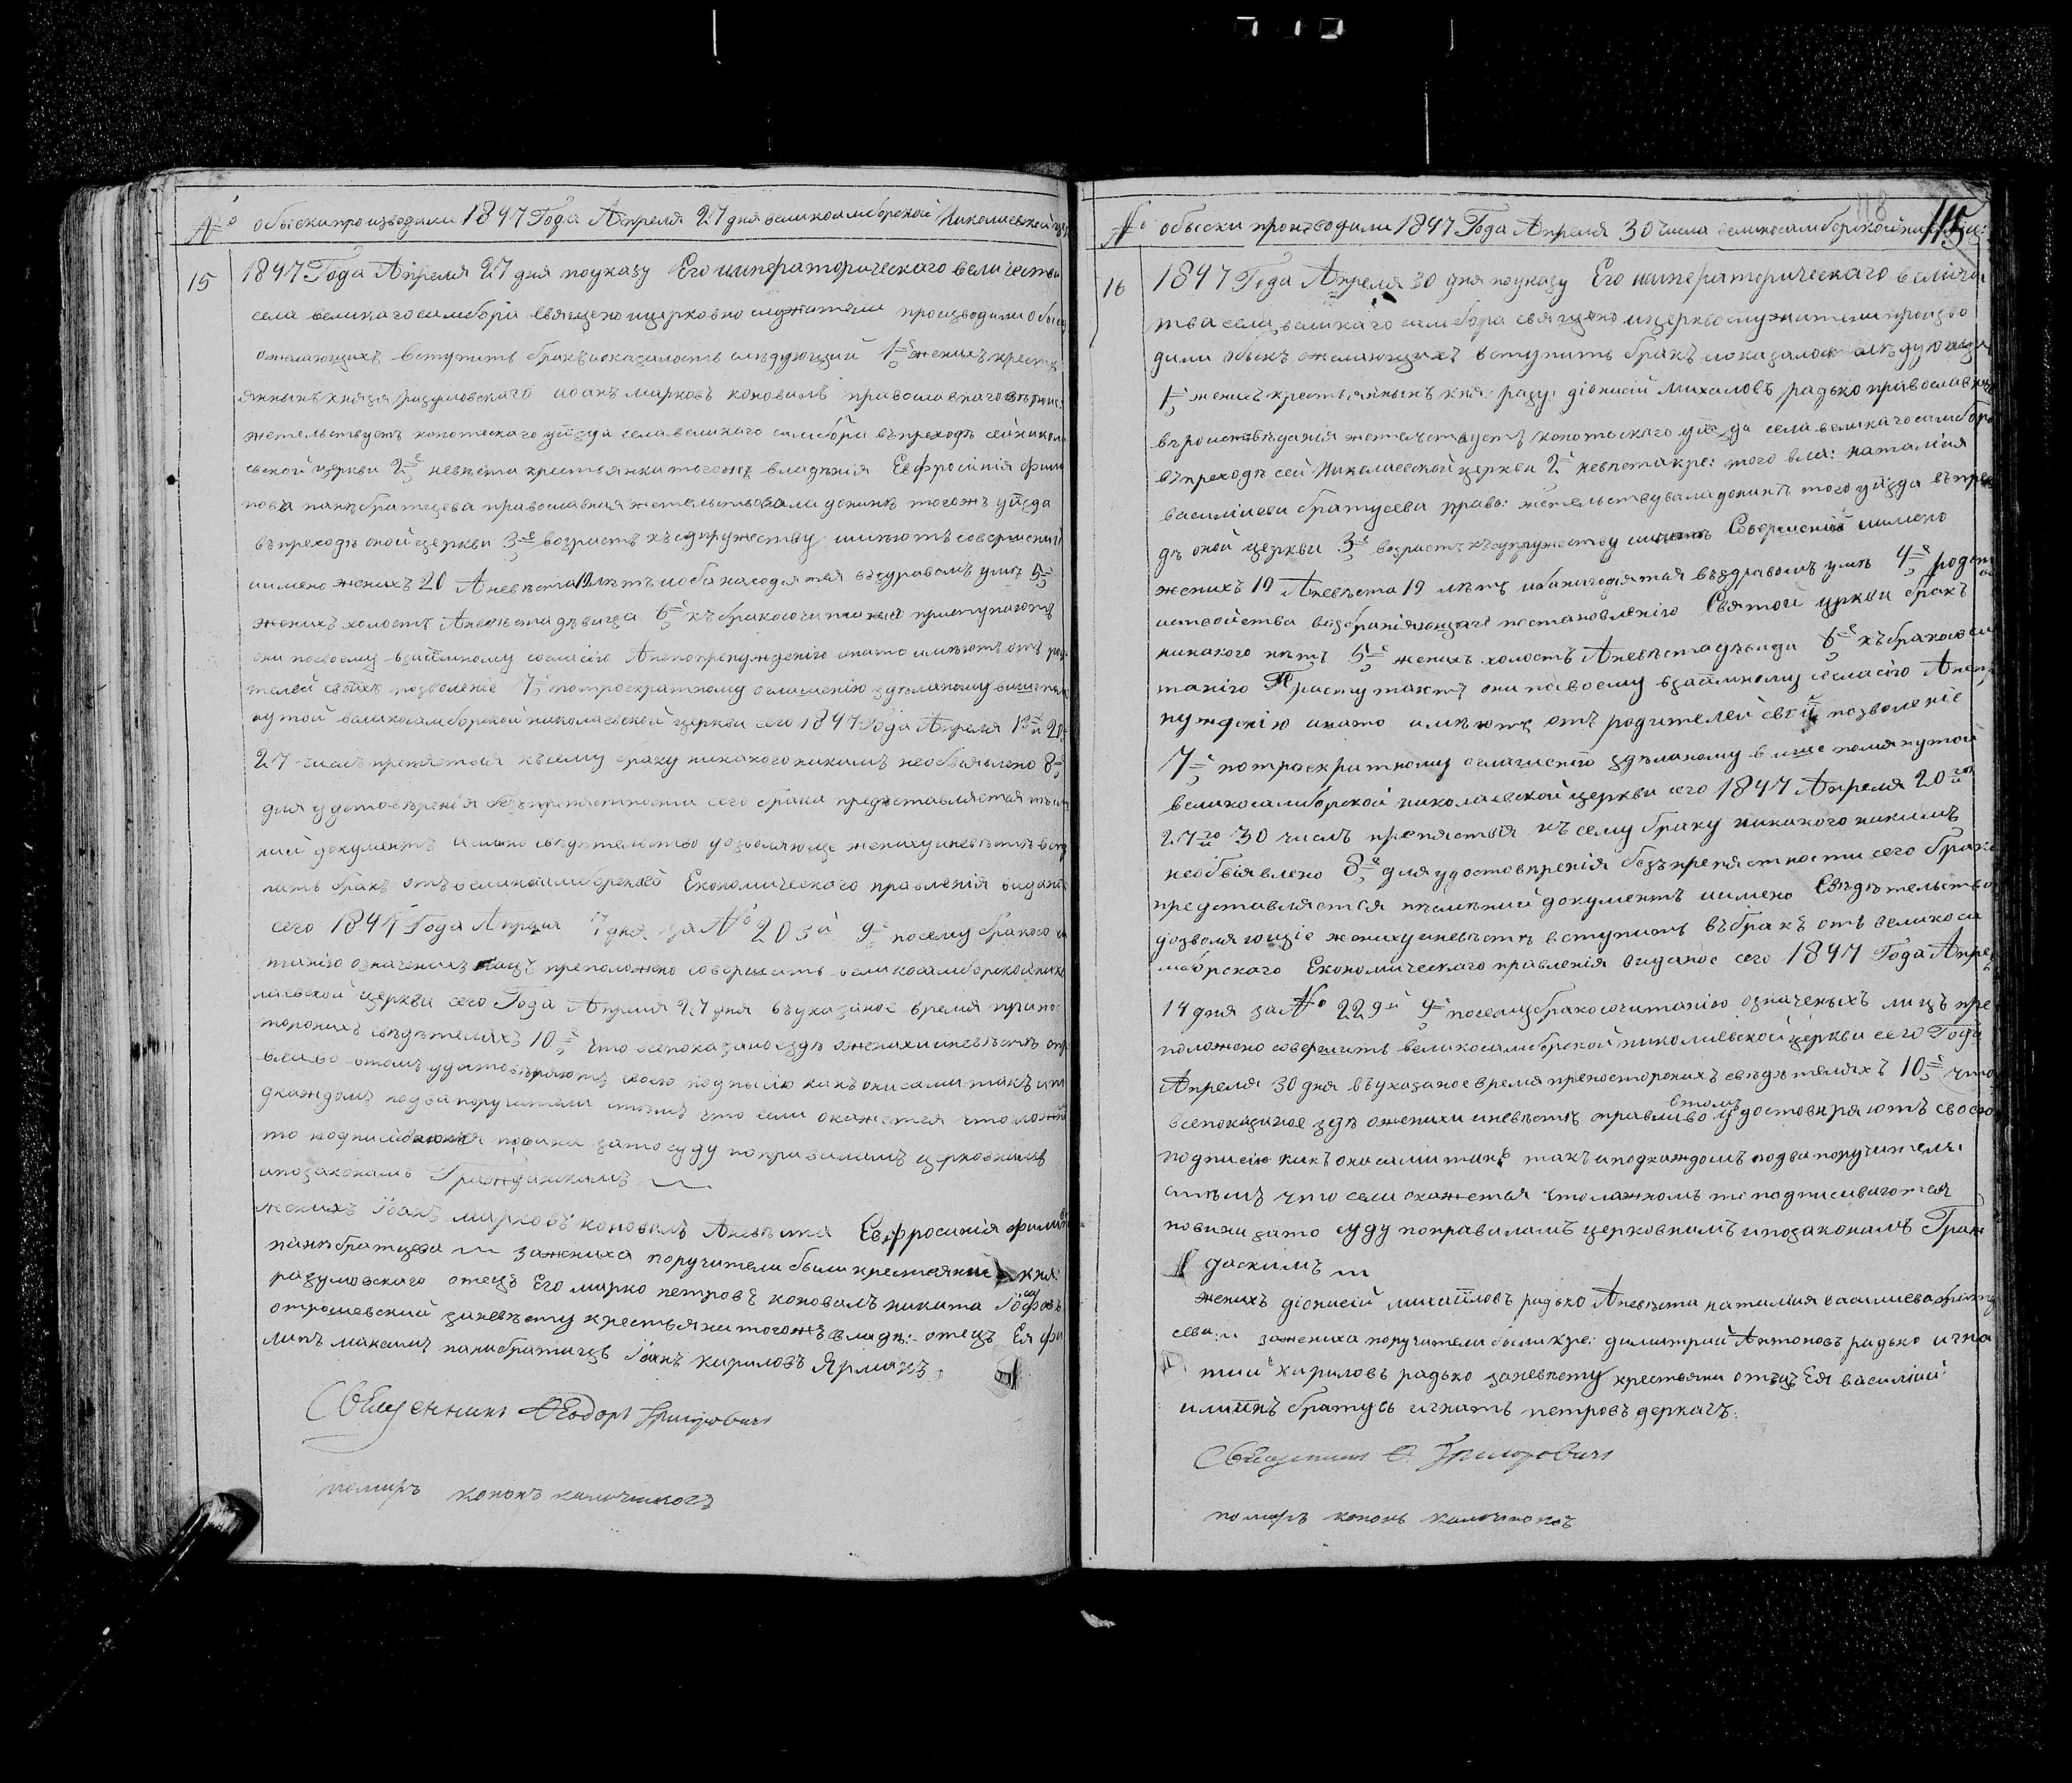 № обыски производили 1847 Года Апреля 27 дня великосамборской Николаевской
15 1847 Года Апреля 27 дня поуказу Его императорическаго величества
села великагосамбора священо ицерковно служители производили обыск
ожелающихъ вступить бракъ иоказалость следующий 1е женихъ крестя
янынъ князя разумовскаго иоанъ марковъ коновалъ православнаго
жетельствуетъ конотоскаго уйзда села великаго самбора въпреходе сей никола
евской церкви 2е невѣста крестьянка тогожъ владѣнія Евфросинія фили
пова панебратцева православная жетельствовала донинѣ тогожъ уйзда
въпреходѣ оной церкви 3е возрастъ къ супружеству имѣютъ совершений
имено женихъ 20 Аневѣста 19 лѣтъ иоба находятся въздравомъ умѣ 5е
женихъ холостъ Аневѣста дѣвица 6е къ бракосочитанию приступаютъ
они посвоему взаймному согласію Анепопренуждению инато имѣютъ отъ роди
телей своихъ позволение 7е потроекратному оглашенію здѣланому вишепомя
нутой великосамборской николаевской церкви сего 1847 Года Апреля 13 и 20
27 числъ препятствия къ сему браку никакого никимъ необъявлено 8е
для удостовѣренія безъпрепятствности сего брака предъставляется
ний документъ имено свѣдѣтельство дозволяюще жениху иневѣстѣ всту
пить бракъ отъ великосамборскаго Економическаго правленія видание
сего 1847 Года Апреля 7 дня за № 203й 9е посему бракосо
танію означенихъ лицъ преположено совершить великосамборской нико
лаевской церкви сего Года Апреля 27 дня въуказаное время припос
торонихъ свѣдѣтеляхъ 10е Что всепоказаноездѣ оженихи иневѣстѣ спра
вливо отомъ удостовѣряютъ своею подписію какъ они сами такъ ипо
дкаждомъ подва поручители стѣмъ что если окажется что ложно
то подписавшия повини зато суду поправиламъ церковнимъ
ипозаконамъ Гражданскимъ
женихъ Иоанъ марковъ коновалъ Аневѣста Евфросинія филипо
панебратцева зажениха поручители были крестяяни кня:
разумовскаго отецъ Его марко петровъ коновалъ никита
отрошевский заневѣсту крестьяни тогожъ владѣ: отецъ Ея фи
липъ максимъ панибратцъ Иоанъ кириловъ Ярмакъ
Священникъ Ѳеодоръ Григоровичъ
помаръ кононъ
118
115
№ обыски производили 1847 Года Апреля 30 числа великосамборской
16 1847 Года Апреля 30 дня поуказу Его императорическаго величе
тва села великаго самбора священо ицерквослужители произво
дили обыскъ ожелающихъ вступить бракъ иоказалось слѣдующи
1е женихъ крестьянынъ кня: разу: діонисій Михаловъ радько православнаго
въроисповѣданія жетельствуетъ конотоскаго уйзда села великаго самбора
въпреходѣ сей Николаевской церкви 2е невѣста кре: того вла: наталія
василиева братусева право: жетельствувала донинѣ того уйзда въпрехо
дѣ оной церкви 3е возрастъ къ супружеству имѣютъ Совершений имено
женихъ 19 Аневѣста 19 лѣтъ иоба находятся въздравомъ умѣ 4е родст
исвойства возбраняющаго постановленію Святой цркви бракъ
никакого нѣтъ 5е женихъ холостъ Аневѣста дѣвица 6е къ бракосочи
танію Приступаютъ они посвоему взаймному согласію Анепр
нужденію инато имѣютъ отъ родителей свой позволеніе
7е потроекратному оглашенію здѣланому више помянутой
великосамборской николаевской церкви сего 1847 Апреля 20го
27го и 30 числъ препятствія къ сему браку никакого никимъ
необъявлено 8е для удостовѣренія безъпрепятстности сего брака
представляется нижеслѣ документъ имено Свѣдѣтельство
дозволяющіе жениху иневѣстѣ вступить въ бракъ отъ великоса
мборскаго Економическаго правленія виданое сего 1847 Года Апре
14 дня за № 229й 9е посему бракосочитанію означеныхъ лицъ пре
положено совершить великосамборской николаевской церкви сего Года
Апреля 30 дня въуказаное время препосторонихъ свѣдѣтеляхъ 10е что
всепоказаное здѣ оженихи иневѣстѣ справливо отомъ удостовиряютъ своею
подписію какъ они сами такъ иподкаждомъ подва поручители
стѣмъ что если окажется что ложномъ то подписиваются
повини зато суду поправиламъ церковнимъ ипозаконамъ Граж
даскимъ
женихъ діонисій михайловъ радько Аневѣста наталия василиева брату
сева: зажениха поручители были кре: димитрий Антоновъ радько игна
тий кириловъ радько заневѣсту крестьяни отецъ Ея василий
илиинъ братусь игнатъ петровъ деркачъ:
Священникъ Ѳ. Григоровичъ
помаръ кононъ